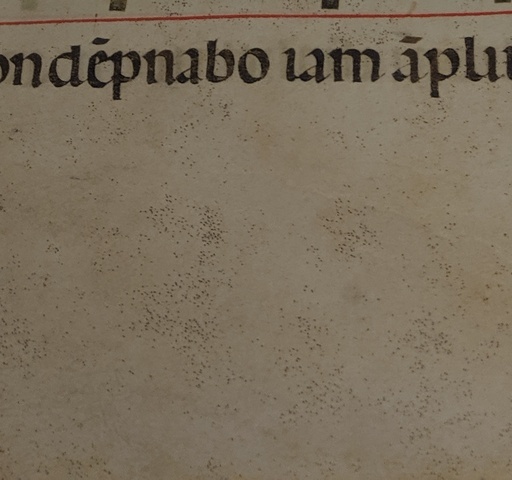 ondēpnabo iam āpliu